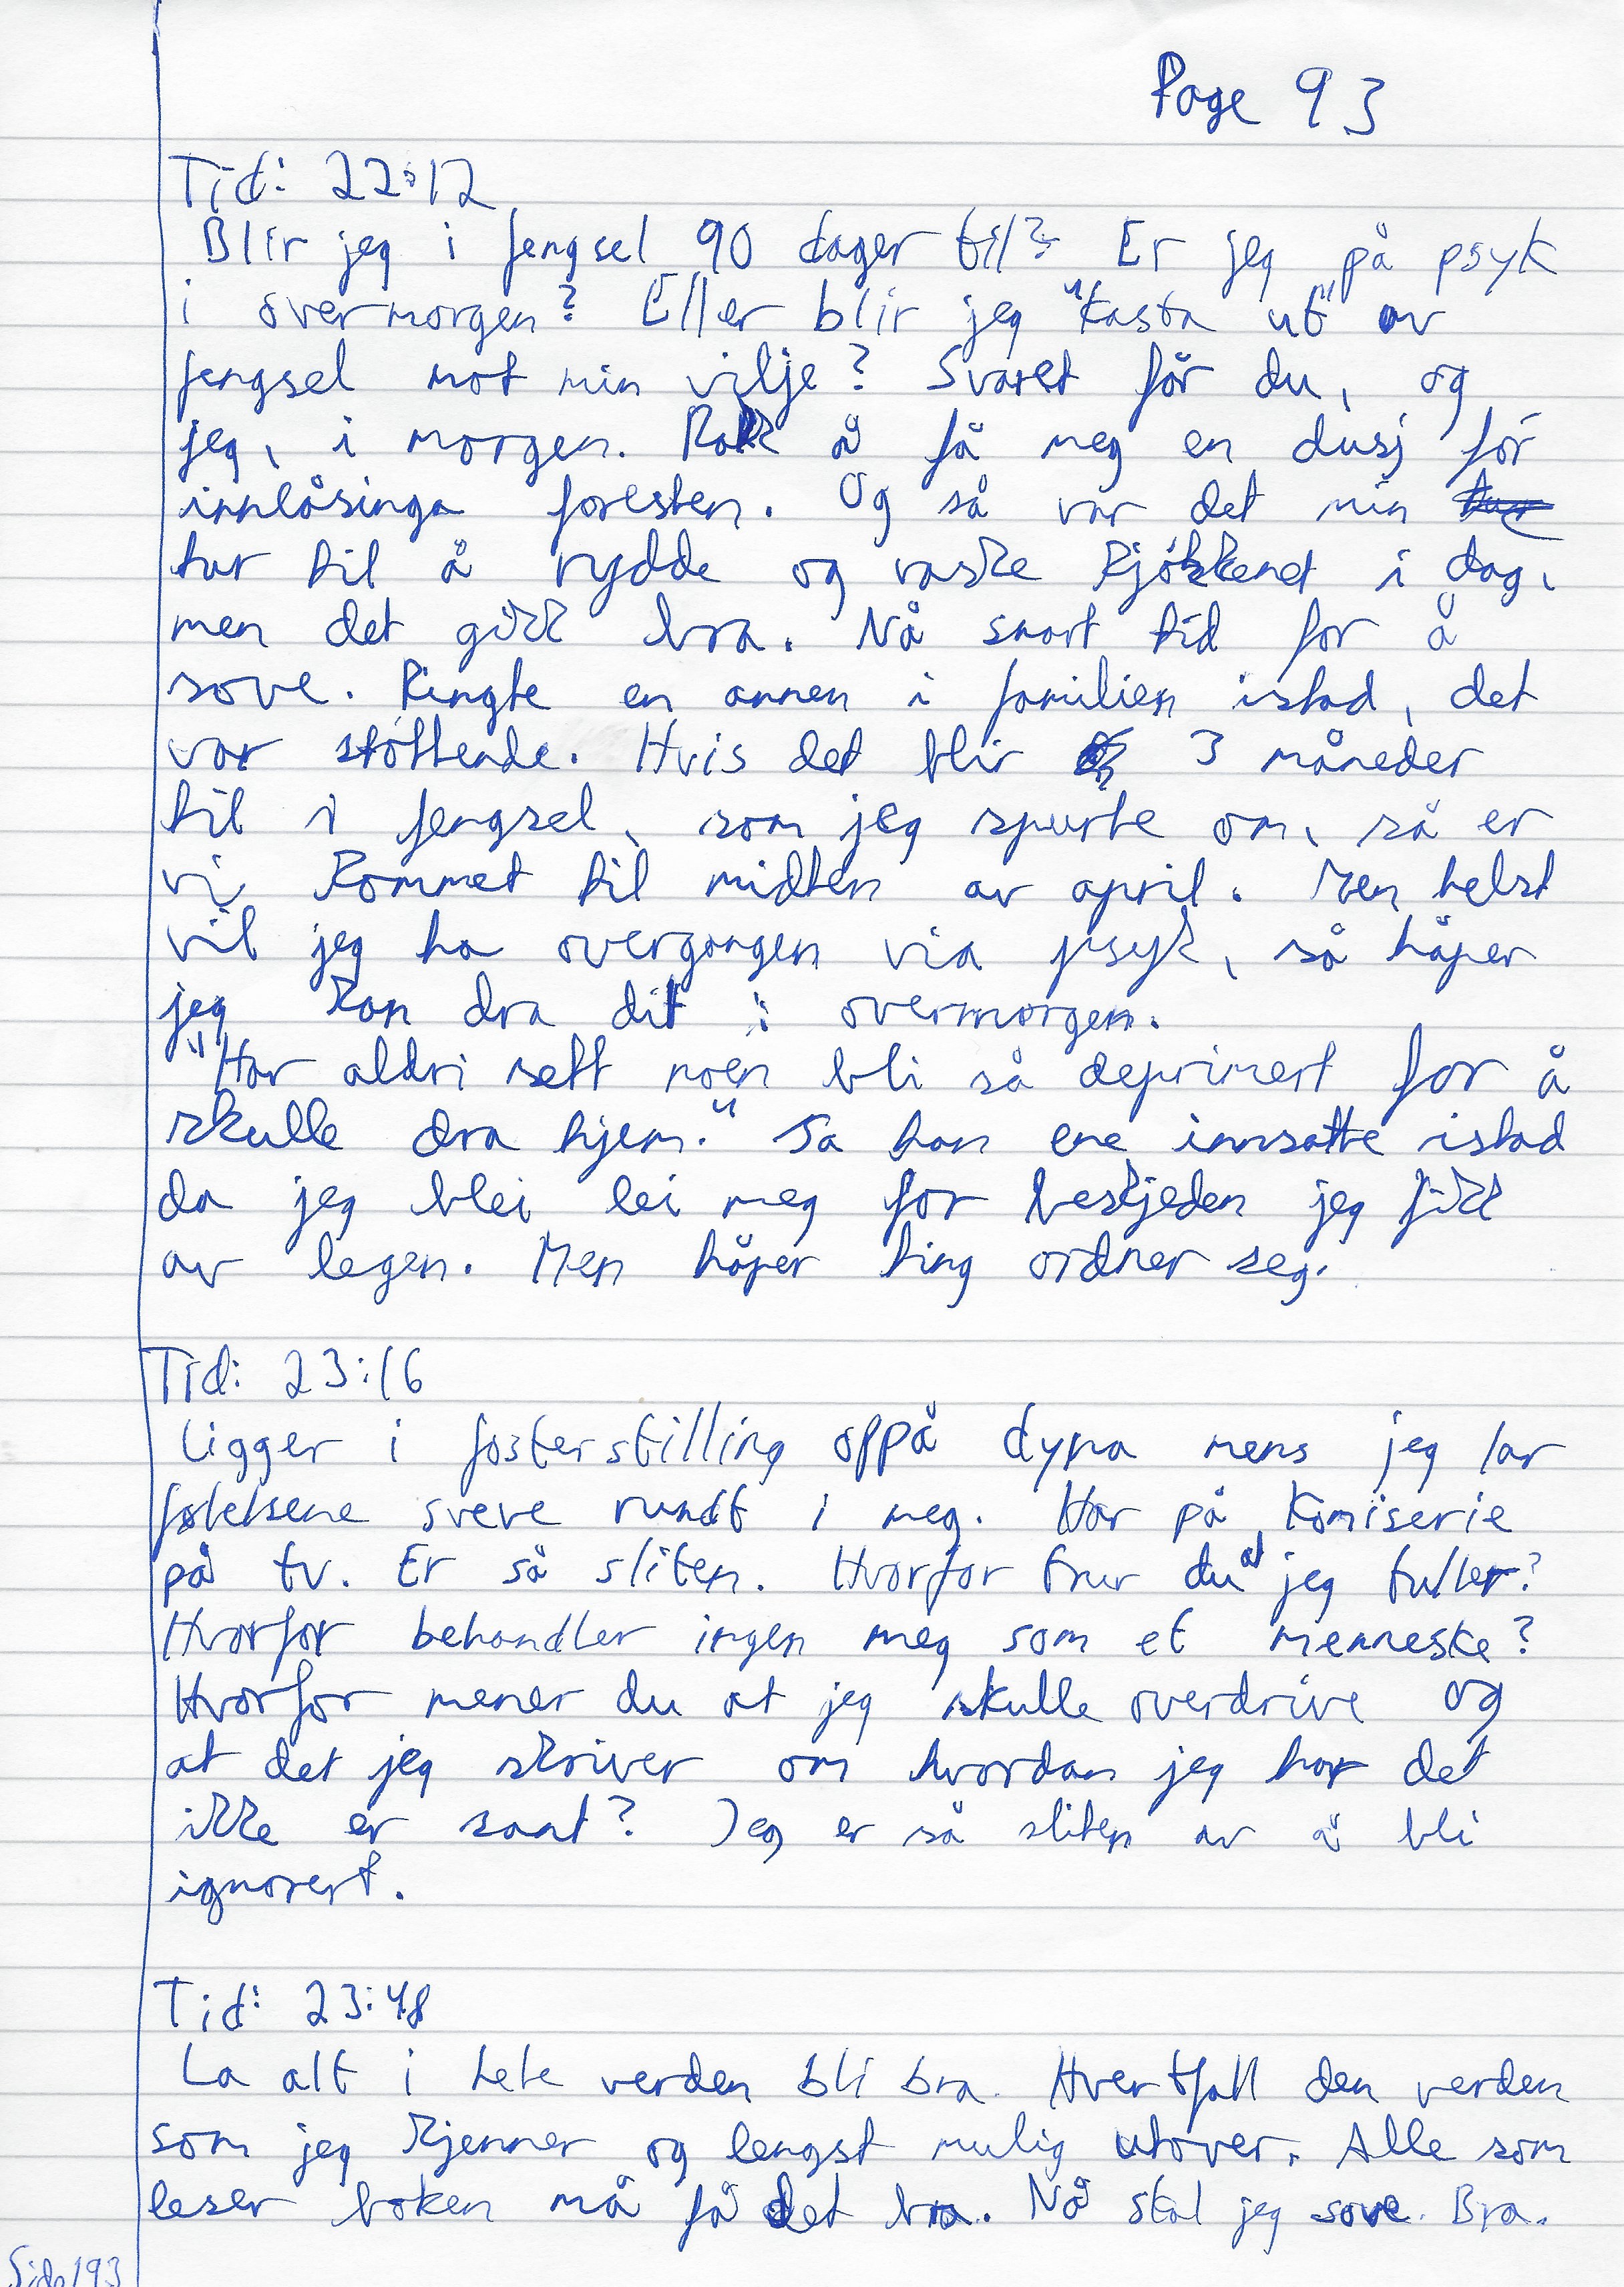 Page 93
Tid: 22:12
Blir jeg i fengsel 90 dager til? Er jeg på psyk
i overmorgen? Eller blir jeg "kasta ut" av
fengsel mot min vilje? Svaret får du, og
jeg, i morgen. Rakk å få meg en dusj før
innlåsinga foresten. Og så var det min
tur til å rydde og vaske kjøkkenet i dag,
men det gikk bra. Nå snart tid for å
sove. Ringte en annen i familien istad, det
var støttende. Hvis det blir 3 måneder
til i fengsel, som jeg spurte om, så er
vi kommet til midten av april. Men helst
vil jeg ha overgangen via psyk, så håper
jeg kan dra dit i overmorgen.
"Har aldri sett noen bli så deprimert for å
skulle dra hjem." Sa han ene innsatte istad
da jeg blei lei meg for beskjeden jeg fikk
av legen. Men håper ting ordner seg.
Tid: 23:16
Ligger i fosterstilling oppå dyna mens jeg lar
følelsene sveve rundt i meg. Har på Komiserie
på tv. Er så sliten. Hvorfor trur du at jeg tuller?
Hvorfor behandler ingen meg som et menneske?
Hvorfor mener du at jeg skulle overdrive og
at det jeg skriver om hvordan jeg har det
ikke er sant? Jeg er så sliten av å bli
ignorert.
Tid: 23:48
La alt i hele verden bli bra. Hvertfall den verden
som jeg kjenner og lengst mulig utover. Alle som
leser boken må få det bra. Nå skal jeg sove. Bra.
Side 193